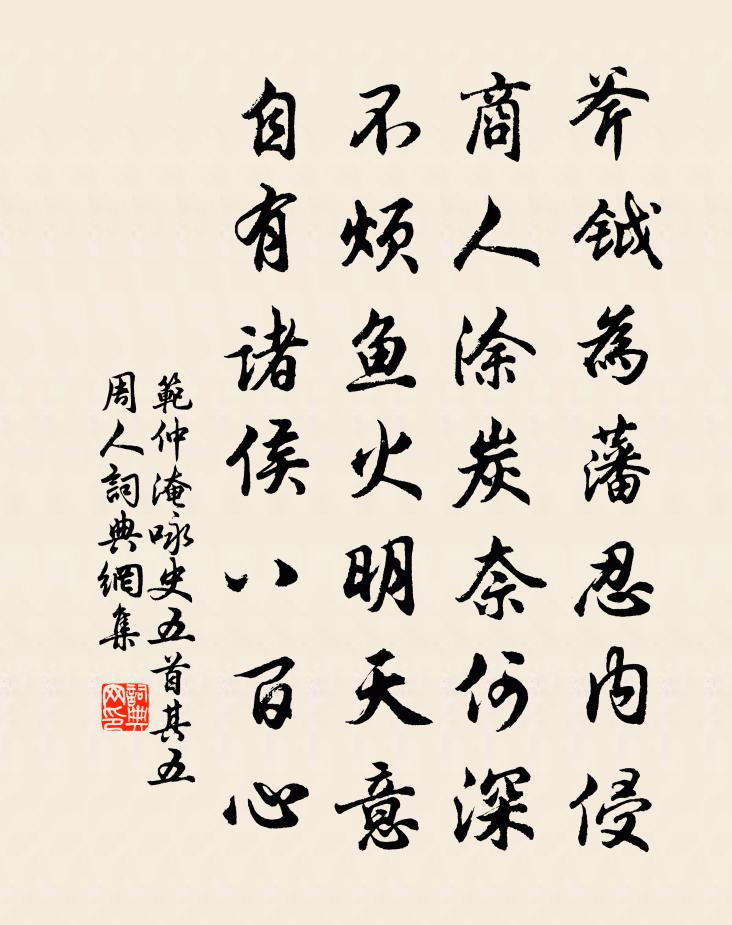 斧鉞為藩忍内侵
商人涂炭奈何深
不烦鱼火明天意
自有诸侯八百心
範仲淹咏史五首其五
周人詞典網集
詞典网印